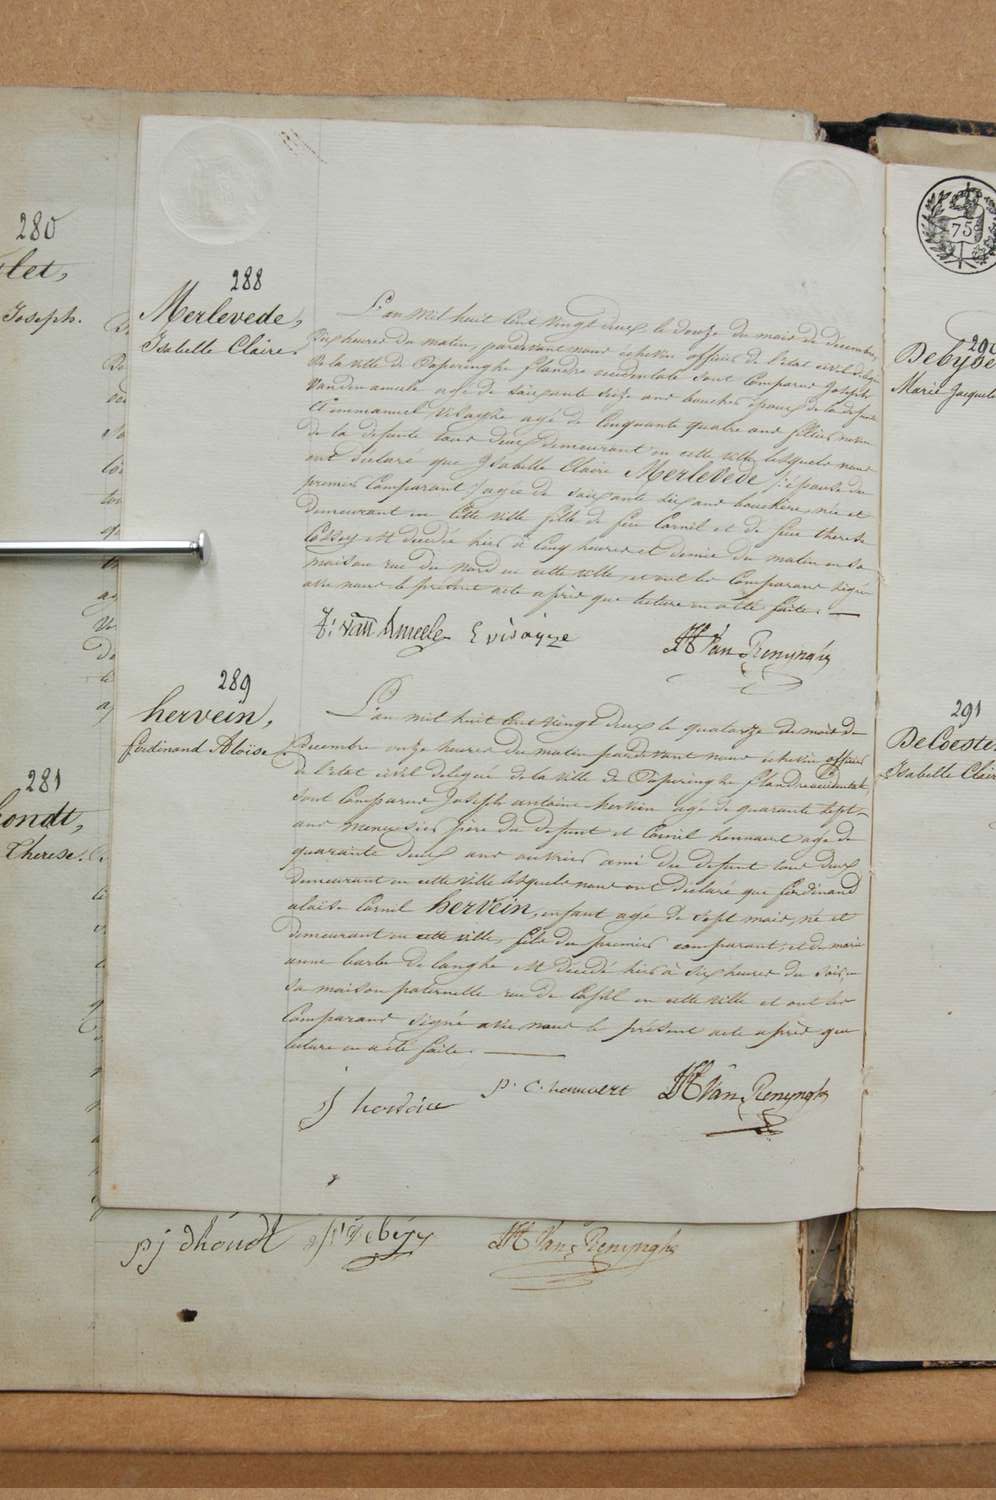 280
Joseph.
281
Therese.
288
Merlevede,
Isabelle Claire.
L'an mil huit cent vingt deux le douze du mois de décembre,
dix heures du matin, pardevant nous échevin officier de l'état civil délegué
de la ville de Poperinghe flandre occidentale sont comparus Joseph
Vandenameele agé de soixante seize ans boucher époux de la defunte
et emmanuel Visaÿze agé de cinquante quatre ans
de la defunte tous deux demeurant en cette ville lesquels nous
ont déclaré que Isabelle Claire Merlevede /: épouse du
premier comparant :/ agée de soixante dix ans bouchère, née et
demeurant en cette ville fille de feu Cornil et de feue therese
est decedée hier à cinq heures et demie du matin en sa
maison rue du Nord en cette ville, et ont les comparans signé
avec nous le présent acte après que lecture en a été faite.
J: van Ameele E visaÿze Van Renynghe
289
hervein,
ferdinand Aloise
L'an mil huit cent vingt deux le quatorze du mois de
decembre onze heures du matin pardevant nous échevin officier
de l'état civil delegué de la ville de Poperinghe flandre occidentale,
sont comparus Joseph antoine hervein agé de quarante sept
ans menuisier père du defunt et Cornil hennaert agé de
quarante deux ans ouvrier ami du defunt tous deux
demeurant en cette ville lesquels nous ont declaré que ferdinand
aloise Cornil hervein, enfant agé de sept mois, né et
demeurant en cette ville, fils du premier comparant, et de marie
anne barbe de langhe est decedé hier à six heures du soir, en
sa maison paternelle rue de Cassel en cette ville et ont les
comparans signé avec nous le présent acte après que
lecture en a été faite.
p. C. hennaert Van Renynghe
pj dhondt Van Renynghe
75
290
Marie Jacqueli
291
DeCoester
Isabelle Clair